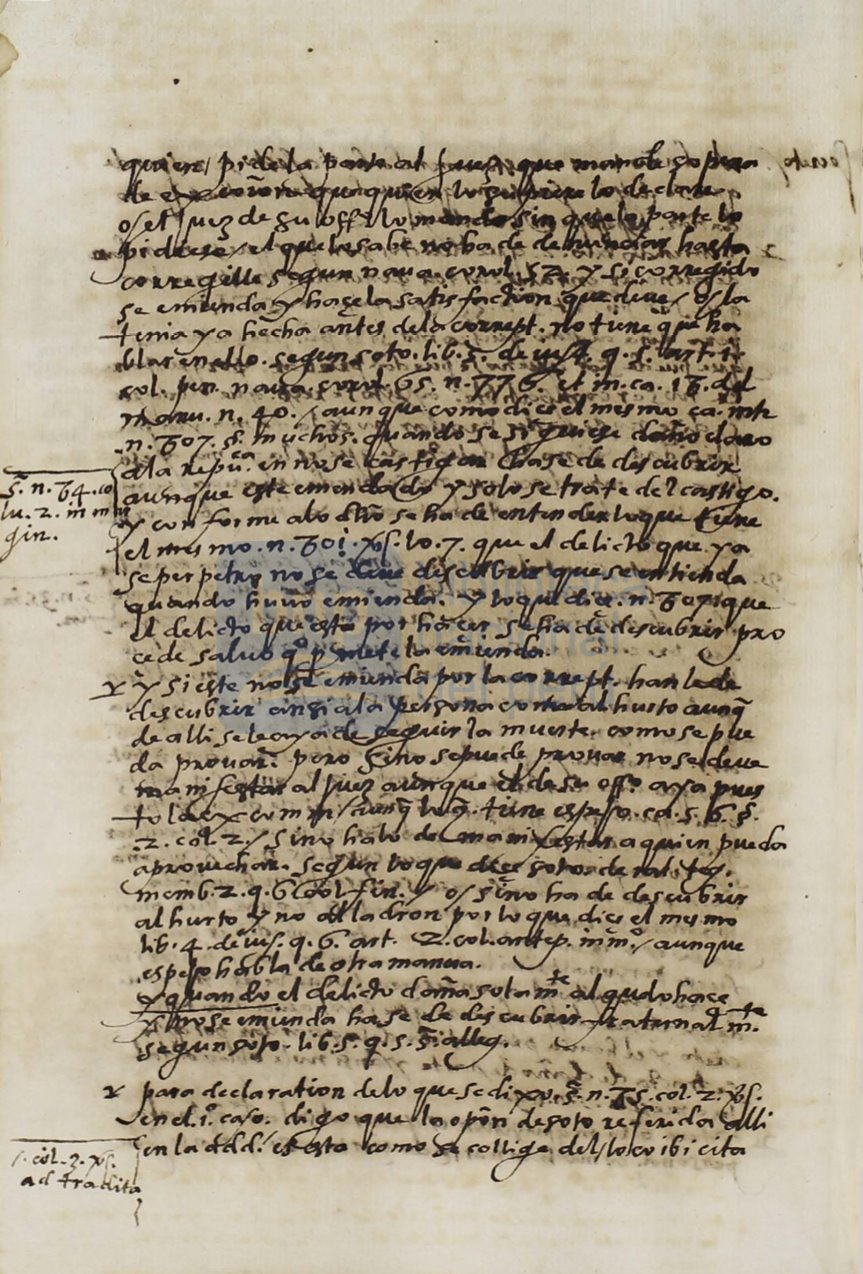 quiere / pide la parte al juez que mande so pena
de excomunion que quien lo supiere lo declare
o / el Juez de su offº lo manda sin que la parte lo
pidiese / el que lo sabe no ha de denunciar hasta
corregille segun naua. corol. 52. y si corregido
se emienda y haze la satisfaction que deue / o / la
tenia ya hecha antes dela corrept. no tiene que ha
blar en ello. segun soto. lib. 5. de iust. q. art. 1.
col. pen. naua. corol. 65. n. 776. et in. ca. 18. del
manu. n. 40. / aunque como dice el mismo ca.
n. 607. §. muchos. quando se siguiese daño claro
ala repu.ca en no se castigar hase de descubrir
aunque este emendado y solo se trate del castigo.
s. n. 64. co
lu. 2. in mar
gin.
y conforme a lo dho se ha de entender lo que tiene
el mesmo. n. 601. lo. 7. que el delicto que ya
se perpetro no se deue descubrir que se entienda
quando huuo emienda. y lo que dice. n. 607. que
el delicto que esta por hacer se ha de descubrir pro
cede saluo qº promete la emienda.
y si este no se emienda por la corrept. han le de
descubrir ansi a la persona como al hurto aunq̃
de alli se le aya de seguir la muerte. como se pue
da prouar. pero si no se puede prouar no se deue
manifestar al juez aunque el de su offº aya pues
to la excomm / aunq̃ lo q̃. tiene espejo. ca. 5. 6. §.
2. col. 2 / sino halo de manifestar a quien pueda
aprouechar. segun lo que dice soto. de rat. teg.
memb. 2. q. 6. col. fin. y / o / sino ha de descubrir
al hurto y no al ladron por lo que dice el mesmo
lib. 4. de ius. q. 6. art. 2. col. antep. / aunque
espejo habla de otra manera.
y quando el delicto daña sola m.te al que lo hace
y no se emienda ha se de descubrir fraternal m.te
segun soto. lib. 5. q. 5. alleg.
para declaration de lo que se dixo. s. n. 65. col. 2.
en el. 1º. caso. digo que la opõn de soto referida alli
en la add. / es esta como se collige del / loco ibi cita
col. 3.
ad tradita